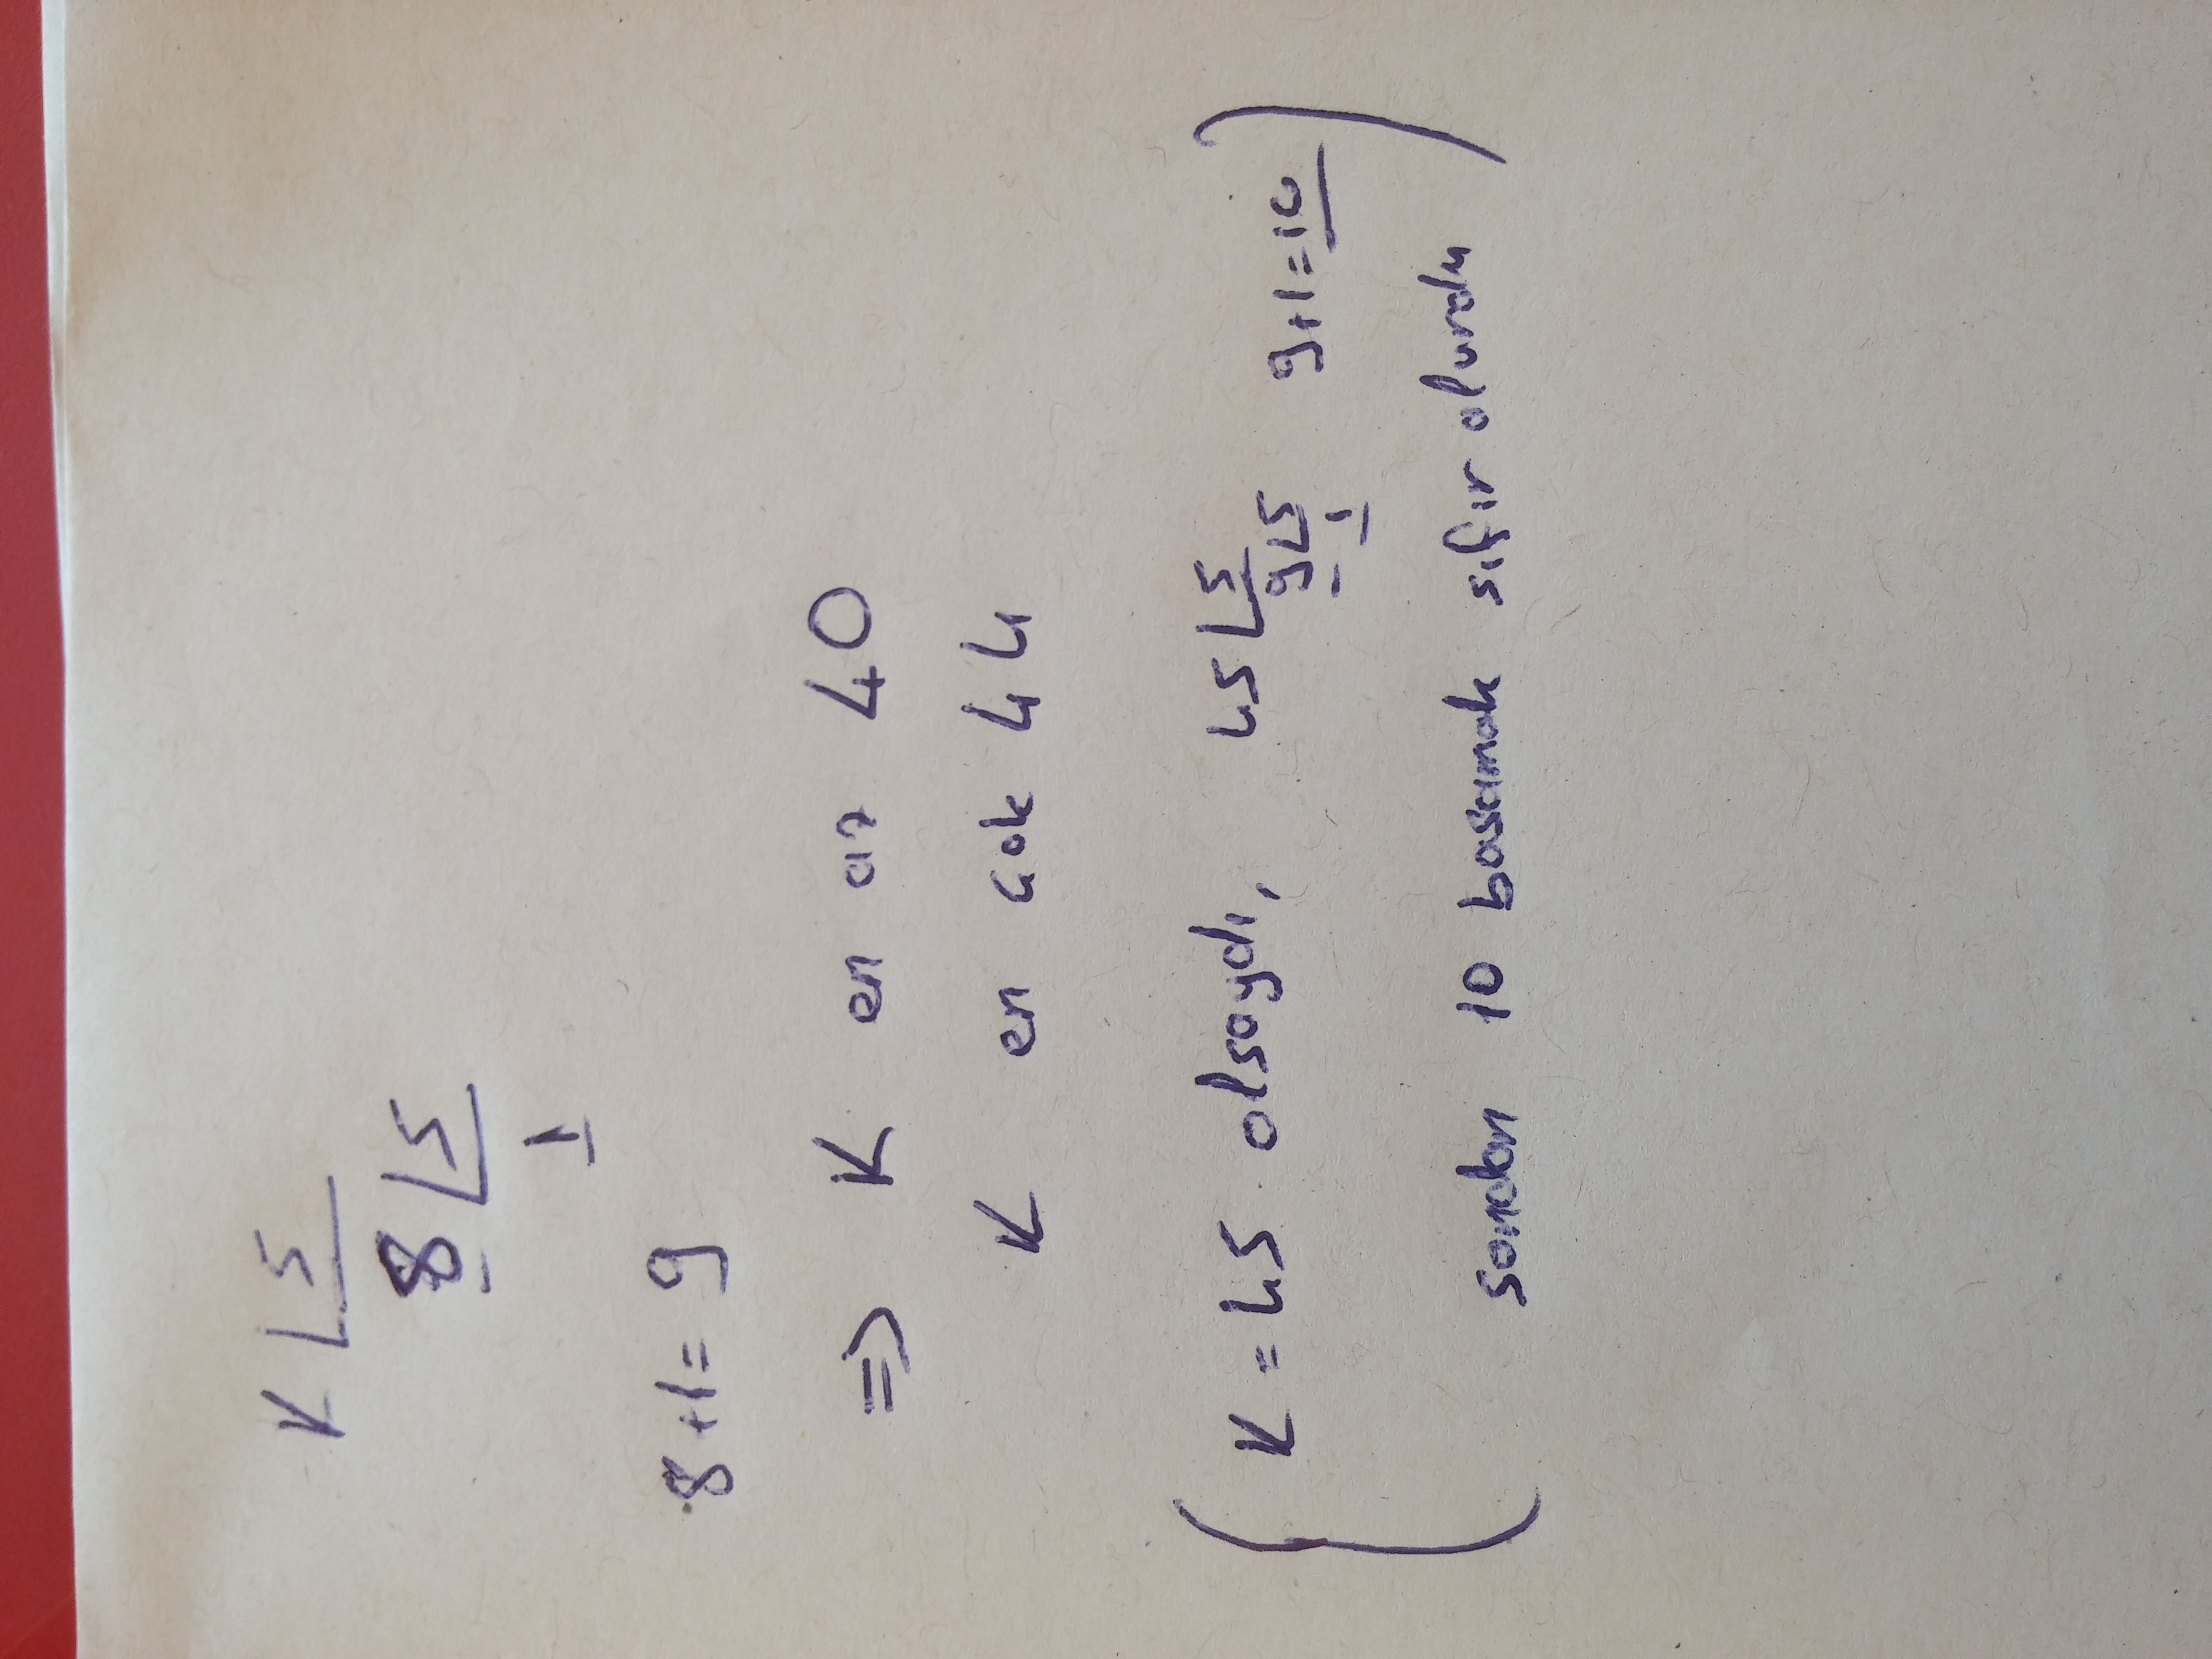 K 5
8 5
1
8+1=9
⇒ K en az 40
K en çok 44
(K=45 olsaydı, 45 5
9 5 9+1=10
1
sondan 10 basamak sıfır olurdu)